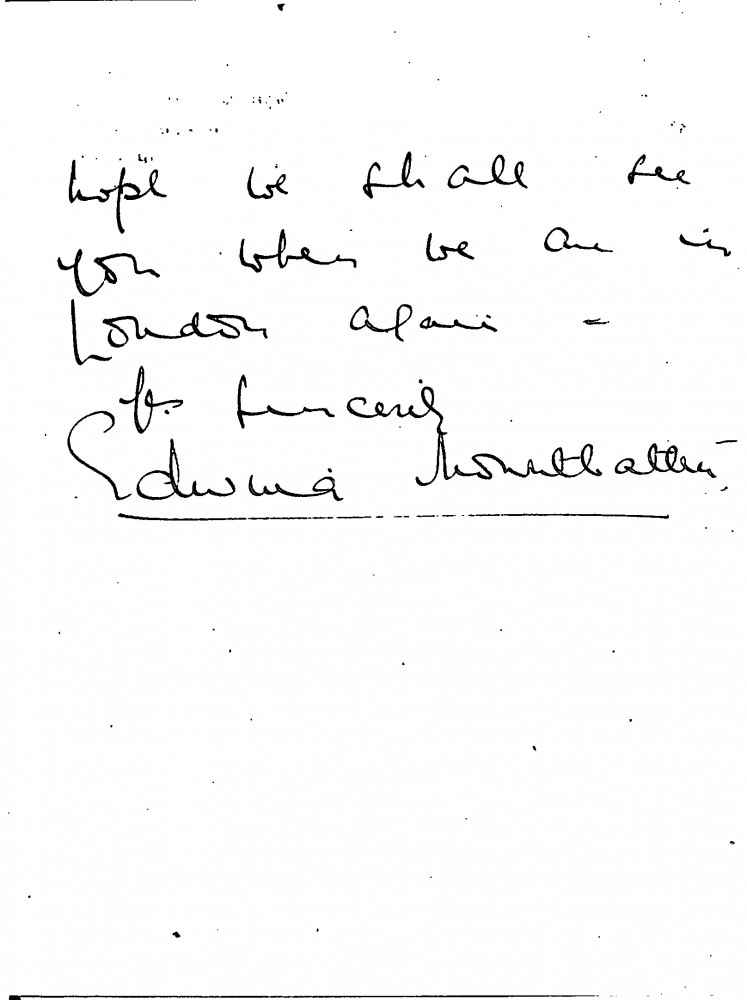 hope we shall see
you when we are in
London again -
Yrs sincerely
Edwina Mountbatten